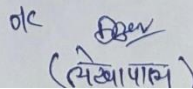 o/c
(लेखापाल)